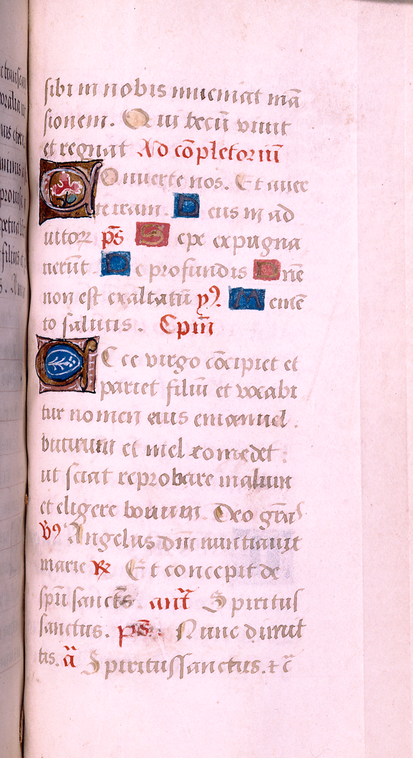 sibi in nobis inueniat mā
sionem. Qui tecū viuit
et regnat Ad cōpletoriū
Conuerte nos. Et auer
te iram. Deus in ad
iutor p̄s Sepe expugna
uerūt. De profundis Dn̄e
non est exaltatū ꝟ. Memē
to salutis. Cpm̄
Ecce virgo cōcipiet et
pariet filiū et vocabi
tur nomen eius emanuel.
butirum et mel comedet:
ut sciat reprobare malum
et eligere bonum. Deo gr̄as
ꝟ Angelus dn̄i nuntiauit
marie ℞ Et concepit de
spū sancto. ant̄ Spiritus
sanctus. ps̄. Nunc dimit
tis. ā Spiritus sanctus. ꝛ c̄